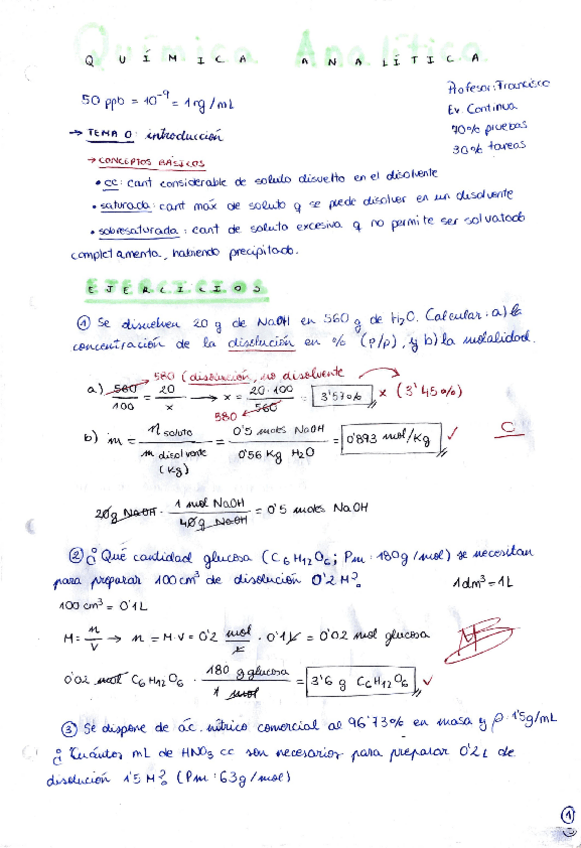 Química Analítica
QUÍMICA ANALÍTICA
Profesor: Francisco
50 ppb = 10⁻⁹ = 1 ng/mL
Ev Continua
70% pruebas
30% tareas
→ TEMA 0: introducción
→ CONCEPTOS BÁSICOS
• cc: cant considerable de soluto disuelto en el disolvente
• saturada: cant máx de soluto q se puede disolver en un disolvente
• sobresaturada: cant de soluto excesiva q no permite ser solvatado
completamente, habiendo precipitado.
EJERCICIOS
① Se disuelven 20 g de NaOH en 560 g de H₂O. Calcular: a) la
concentración de la disolución en % (p/p), y b) la molalidad.
580 (disolución, no disolvente
a) 560/100 = 20/x → x = 20·100/560 = 3'57% x (3'45%)
580
b) m = n soluto / m disolvente (Kg) = 0'5 moles NaOH / 0'56 Kg H₂O = 0'893 mol/Kg ✓ C
20g NaOH · 1 mol NaOH / 40g NaOH = 0'5 moles NaOH
② ¿Qué cantidad glucosa (C₆H₁₂O₆; Pm: 180g/mol) se necesitan
para preparar 100cm³ de disolución 0'2 M? 1dm³=1L
100 cm³ = 0'1L
M = n/V → n = M·V = 0'2 mol/L · 0'1L = 0'02 mol glucosa MB
0'02 mol C₆H₁₂O₆ · 180 g glucosa / 1 mol = 3'6 g C₆H₁₂O₆ ✓
③ Se dispone de ác. nítrico comercial al 96'73% en masa y ρ = 1'5g/mL
¿Cuántos mL de HNO₃ cc son necesarios para preparar 0'2L de
disolución 1'5 M? (Pm: 63g/mol)
①